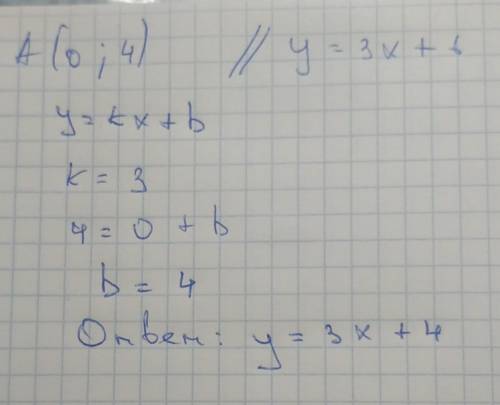 A(0;4) // y = 3x + 1
y = kx + b
k = 3
4 = 0 + b
b = 4
Ответ: y = 3x + 4